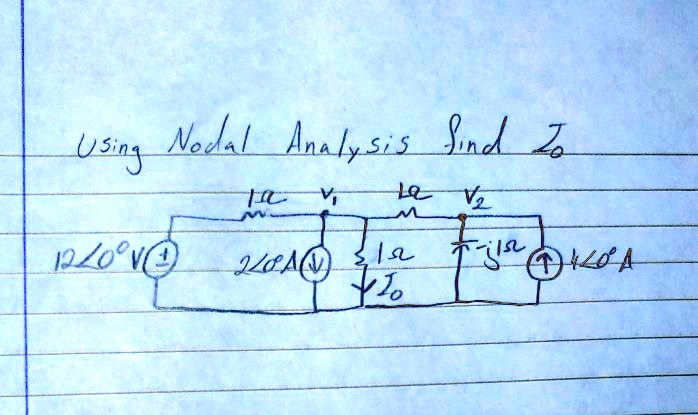 Using Nodal Analysis find I₀
1Ω V₁ 1Ω V₂
12∠0° V ± 2∠0° A 1Ω -j1Ω 4∠0° A
I₀